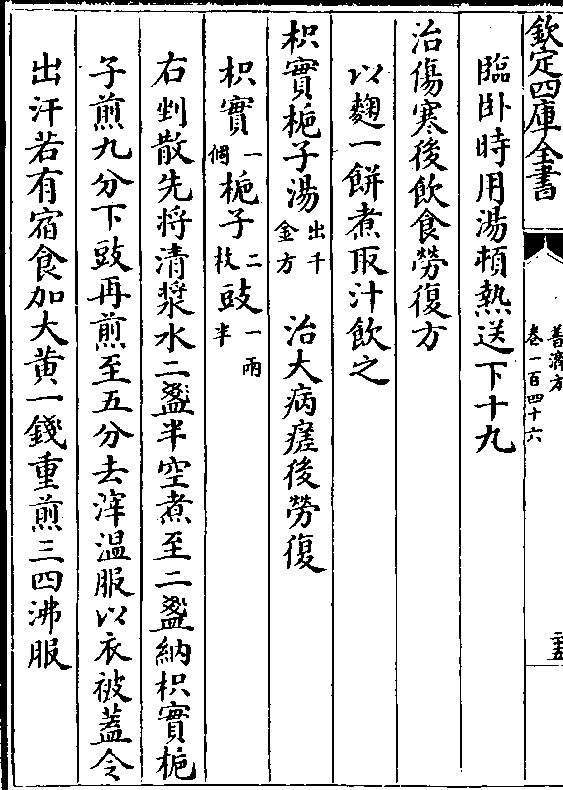 欽定四庫全書
普濟方
卷一百四十六
二十五
臨卧時用湯頓熱送下十九
治傷寒後飲食勞復方
以麴一餅煮取汁飲之
枳實梔子湯出千金方 治大病瘥後勞復
枳實一個梔子二枚豉一兩半
右剉散先將清漿水二盞半空煮至二盞納枳實梔
子煎九分下豉再煎至五分去滓温服以衣被蓋令
出汗若有宿食加大黄一錢重煎三四沸服